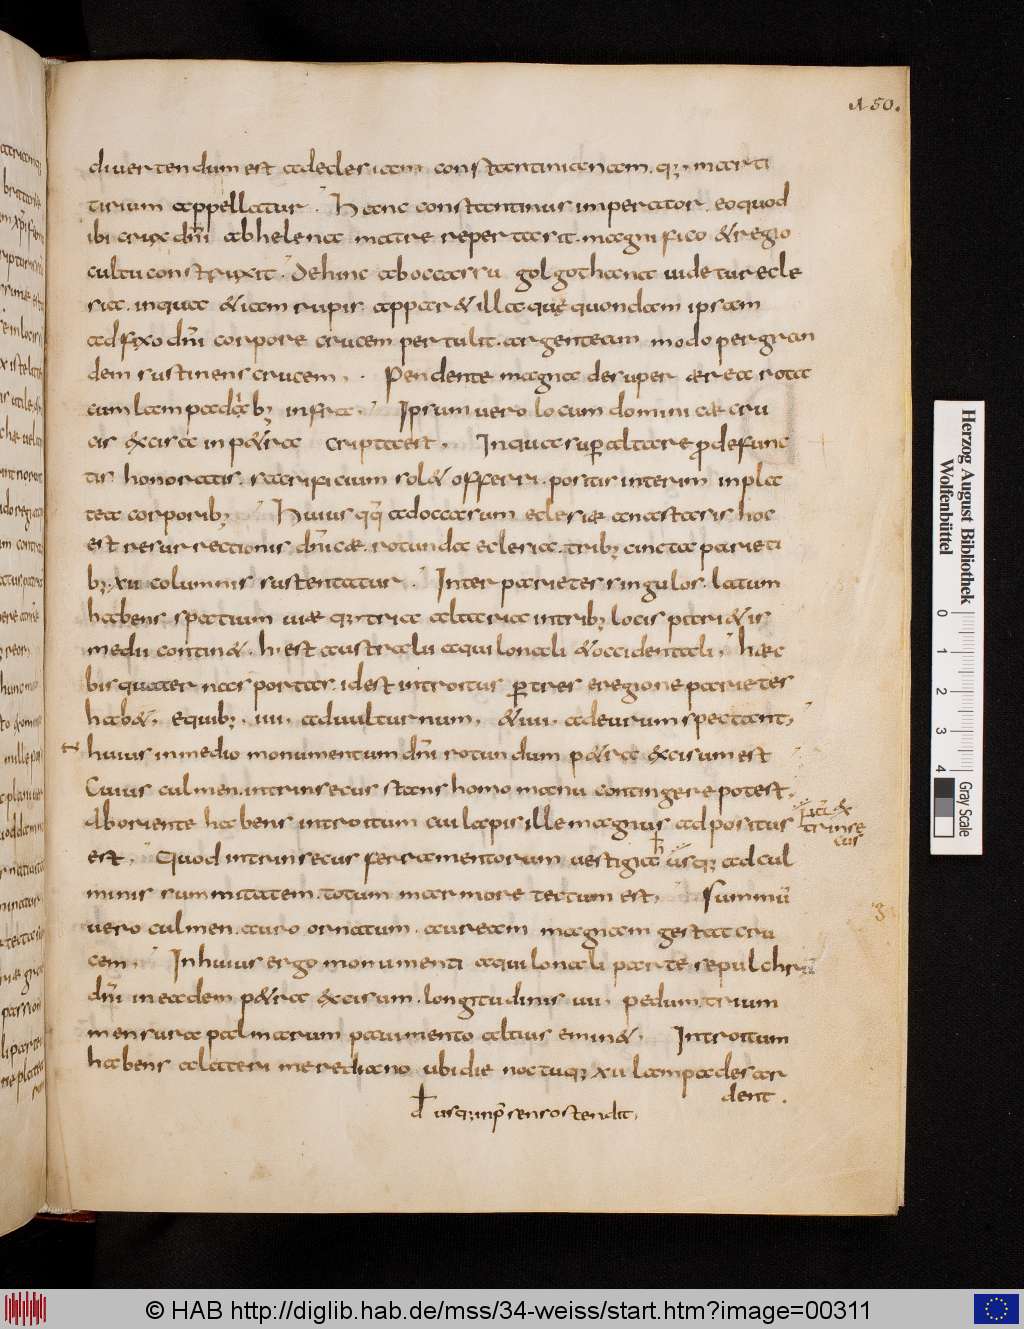 150.
diuertendum est ad eclesiam constantinianam. q; marti
tirium appellatur. Hanc constantinus imperator. eo quod
ibi crux dn̄i ab helena matre repertasit. magnifico & regio
cultu construxit. Dehinc ab occassu golgothana uidetur ecle
sia. in qua & iam rupis appar& illa quę quondam ipsam
adfixo dn̄i corpore crucem pertulit. argenteam modo pergran
dem sustinens crucem. Pendente magna desuper aerea rota
cum lampadib; infra. Ipsum uero locum dominicae cru
cis excisa in p&ra cripta est. In qua sup altare p defunc
tis honoratis. sacrificium sol& offerri. positis interim in pla
tea corporib; Huius qq ad occasum eclesiae anastasis hoc
est resurrectionis dn̄icae. rotunda eclesia. trib; cincta parieti
b; xii columnis sustentatur. Inter parietes singulos. latum
habens spatium uiae q; tria altaria in trib; locis pari&is
medii contin&. h. est australi aquilonali & occidentali. haec
bis quater nas portas. id est introitus p tres e regione parietes
hab&. e quib; iiii. ad uulturnum. & iiii. ad eurum spectant,
huius in medio monumentum dn̄i rotundum p&ra excisum est
Cuius culmen. intrinsecus stans homo manu contingere potest.
Ab oriente habens introitum cui lapis ille magnus adpositus
est. Quod intrinsecus ferramentorum uestigia h̄ usq; ad cul
trinse
cus
minis summitatem. totum marmore tectum est. Summū
uero culmen. auro ornatum. auream magnam gestat cru
cem. In huius ergo monumenti aquilonali parte sepulchrū
dn̄i in eadem p&ra excisum. longitudinis uii pedum. trium
mensura palmarum pauimento altius emin&. Introitum
habens a lateri meridiano ubi die noctuq; xii lampades ar
dent.
đ usq; in p̄sens ostendit,
Herzog August Bibliothek
Wolfenbüttel
0 1 2 3 4
Gray Scale
© HAB http://diglib.hab.de/mss/34-weiss/start.htm?image=00311